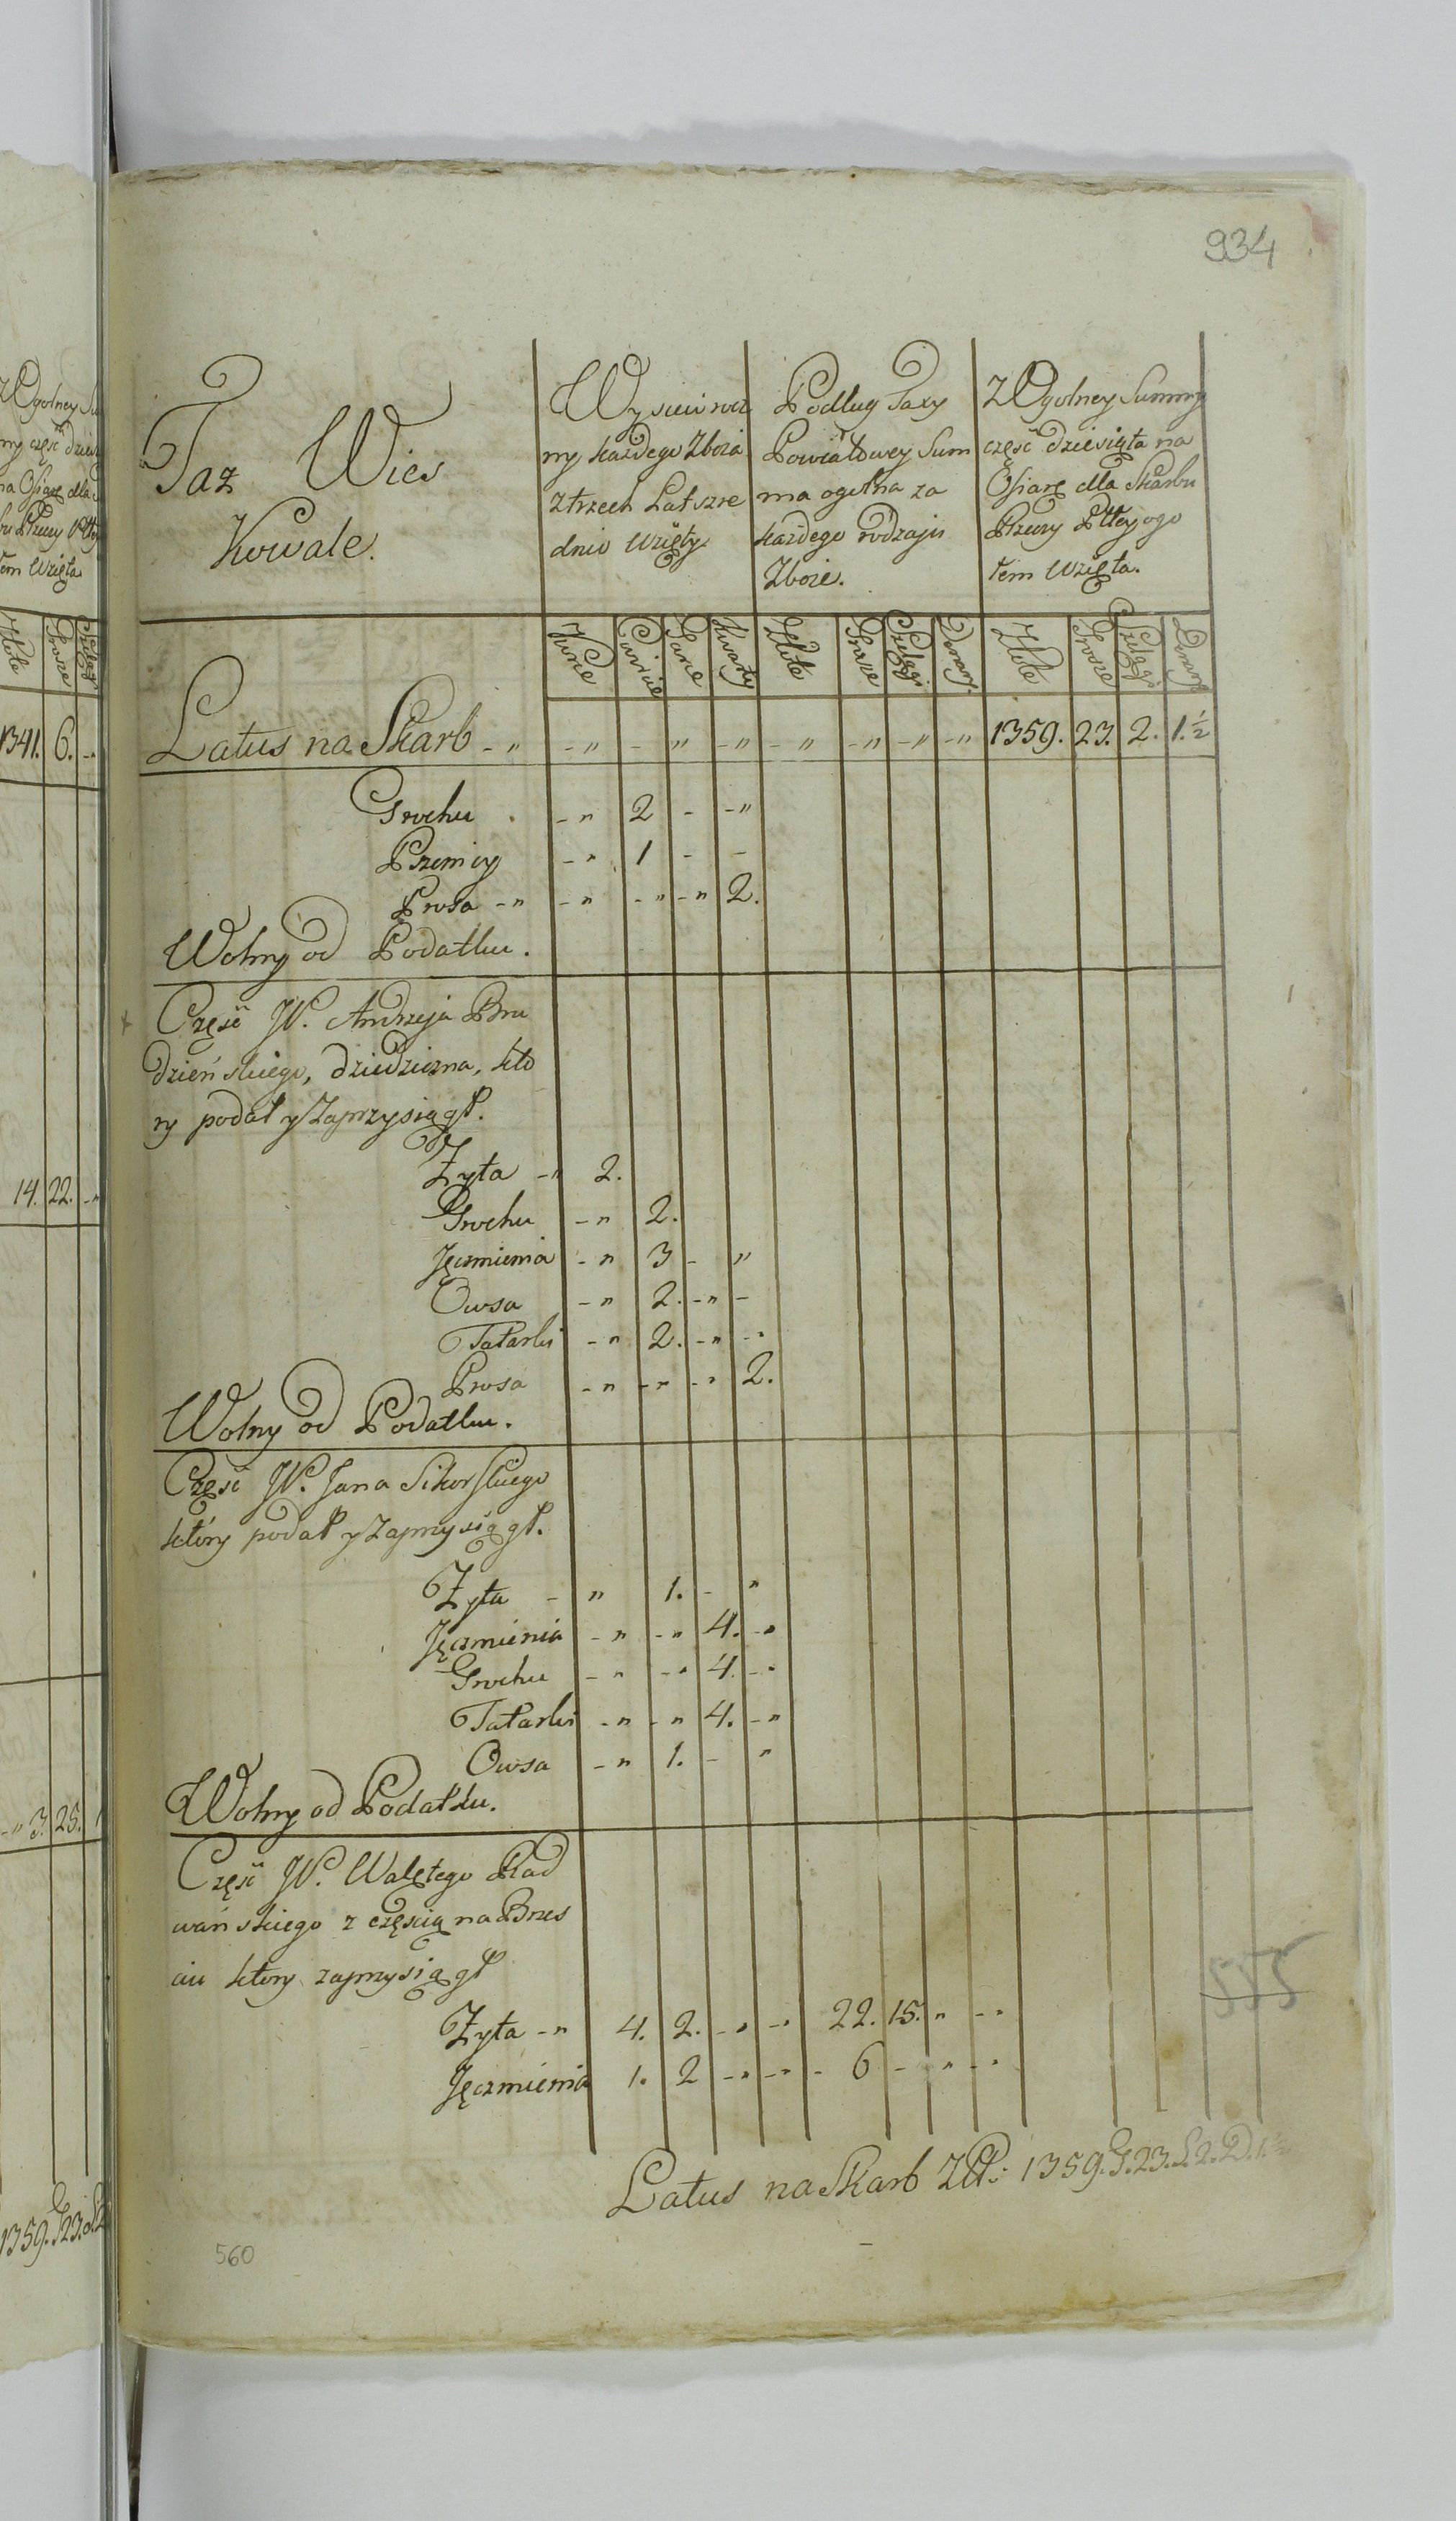 934
Taz Wies
Kowale.
Wysiew rocz
ny każdego Zboża
z trzech Lat szre
dnio wzięty.
Podług Taxy
Powiatowey Sum
ma ogulna za
każdego rodzaju
Zboże.
Z Ogolney Summy
część dziesiąta na
Ofiarę dla Skarbu
Przeswy Pltey ogo
łem wzięta.
Złote Grosze Szelągi Denary Złote Grosze Szelągi Denary
Latus na Skarb - " - " - " - " - " - " - " - " 1359. 23. 2. 1.½
Grochu . - " 2 - - "
Pszenicy - " 1 - -
Prosa - " - " - " - " 2.
Wolny od Podatku.
Część W. Andrzeja Bru
dzeńskiego, dziedziczna, kto
ry podał y Zaprzysiągł.
Żyta - " 2.
Grochu - " 2.
Jęczmienia - " 3 - "
Owsa - " 2. - " -
Tatarki - " 2. - " - "
Prosa - " - " - " 2.
Wolny od Podatku.
Część W. Jana Sikorskiego
który podał y Zaprzysiągł.
Żyta - " 1. - "
Jęczmienia - " - " 4. - "
Grochu - " - " 4. - "
Tatarki - " - " 4. - "
Owsa - " 1. - "
Wolny od Podatku.
Część W. Walętego Rad
wańskiego z częścią na Brzes
ciu ktory zaprzysiągł
Żyta - " 4. 2. - " - " 22. 15. " - "
Jęczmienia 1. 2 - " - " - 6 - " - "
555
Latus na Skarb ZPl: 1359. G. 23. S. 2. D. 1.½
560
1341. 6. -
14. 22. - "
- " 3. 25. 1
1359. G 23. S 2